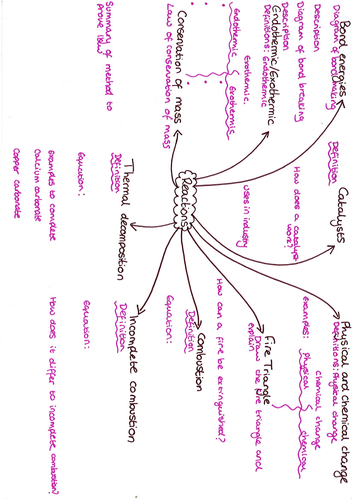 Bond energies
Diagram of bond making
Description
Diagram of bond breaking
Description
Catalysts
Definition
How does a catalyst
work?
Uses in industry
Physical and chemical change
Definitions: Physical change
chemical change
examples:
Physical
chemical
Endothermic/Exothermic
Definitions: Endothermic
Exothermic.
Endothermic
Exothermic
Fire Triangle
Draw the fire triangle and
explain
How can a fire be extinguished?
Reactions
Conservation of mass
Law of conservation of mass
Summary of method to
Prove law
Combustion
Definition
Equation:
Thermal decomposition
Definition
Equation:
Examples to complete
Calcium carbonate
Copper carbonate
Incomplete combustion
Definition
Equation:
How does it differ to incomplete combustion?